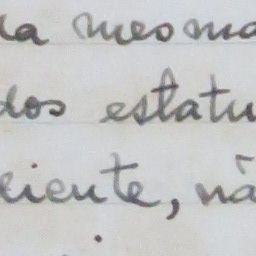 da mesma
dos estatu
ciente, nã